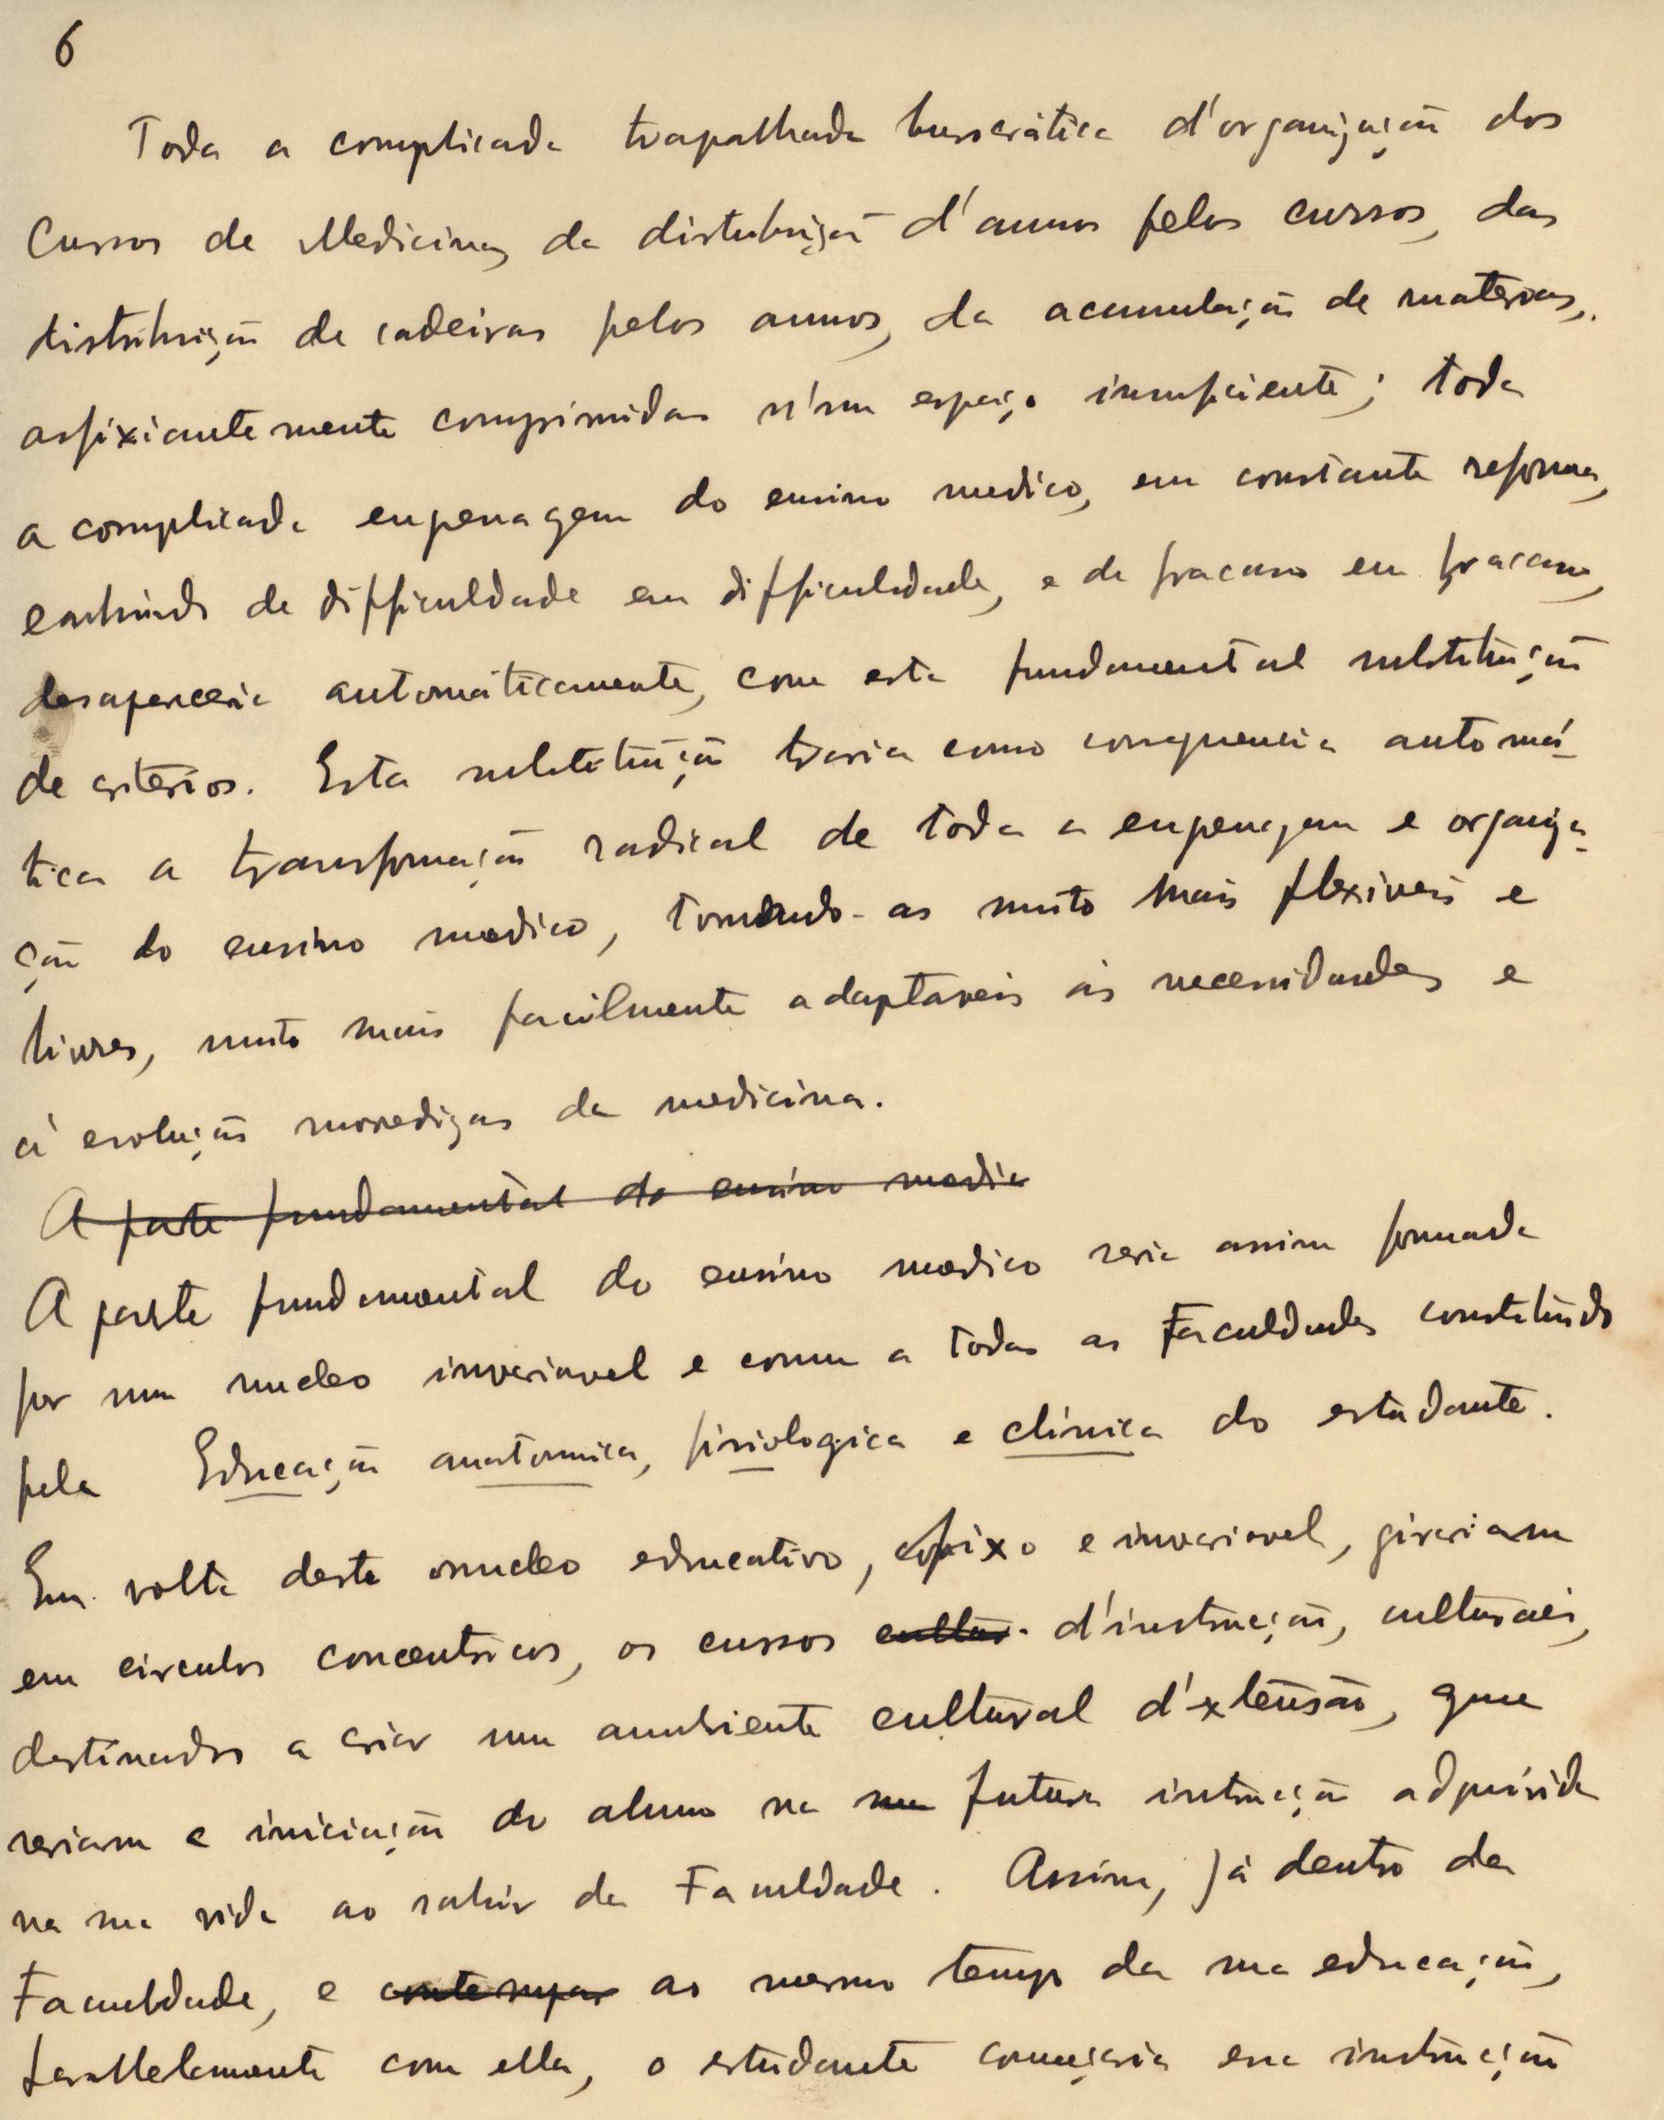 6
Toda a complicada trapalhada burocrática d'organização dos
Cursos de Medicina, da distribuição d'annos pelos cursos, das
distribuição de cadeiras pelos annos, da acumulação de materias,
asfixiantemente comprimidas n'um espaço insuficiente; toda
a complicada engrenagem do ensino medico, em constante reforma,
cahindo de difficuldade em difficuldade, e de fracasso em fracasso,
desapareceria automáticamente, com esta fundamental substituição
de criterios. Esta substituição traria como consequencia automá-
tica a transformação radical de toda a engrenagem e organiza-
ção do ensino medico, tornando-as muito mais flexiveis e
livres, muito mais facilmente adaptaveis ás necessidades e
á evolução movediças da medicina.
A parte fundamental do ensino medic
A parte fundamental do ensino medico seria assim formada
por um nucleo invariavel e comum a todas as Faculdades constituido
pela Educação anatomica, fisiologica e clínica do estudante.
Em volta deste nucleo educativo, fixo e invariavel, girariam
em circulos concentricos, os cursos cultur d'instrucção, culturaes,
destinados a criar um ambiente cultural d'extensão, que
seriam a iniciação do aluno na sua futura instrucção adquirida
na sua vida ao sahir da Faculdade. Assim, já dentro da
Faculdade, e contempor ao mesmo tempo da sua educação,
parallelamente com ella, o estudante começaria essa instrucção